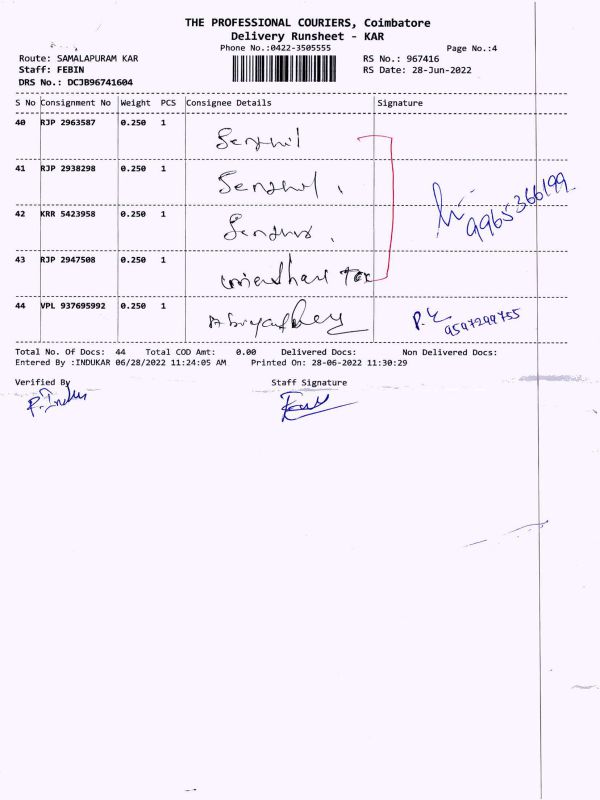 THE PROFESSIONAL COURIERS, Coimbatore
Delivery Runsheet - KAR
Phone No.:0422-3505555
Page No.:4
Route: SAMALAPURAM KAR
RS No.: 967416
Staff: FEBIN
RS Date: 28-Jun-2022
DRS No.: DCJB96741604
S No Consignment No Weight PCS Consignee Details Signature
40 RJP 2963587 0.250 1 Senthil
41 RJP 2938298 0.250 1 Senthil
42 KRR 5423958 0.250 1
9965366199
43 RJP 2947508 0.250 1 Tex
44 VPL 937695992 0.250 1
9597299755
Total No. Of Docs: 44 Total COD Amt: 0.00 Delivered Docs: Non Delivered Docs:
Entered By :INDUKAR 06/28/2022 11:24:05 AM Printed On: 28-06-2022 11:30:29
Verified By Staff Signature
P. Indu